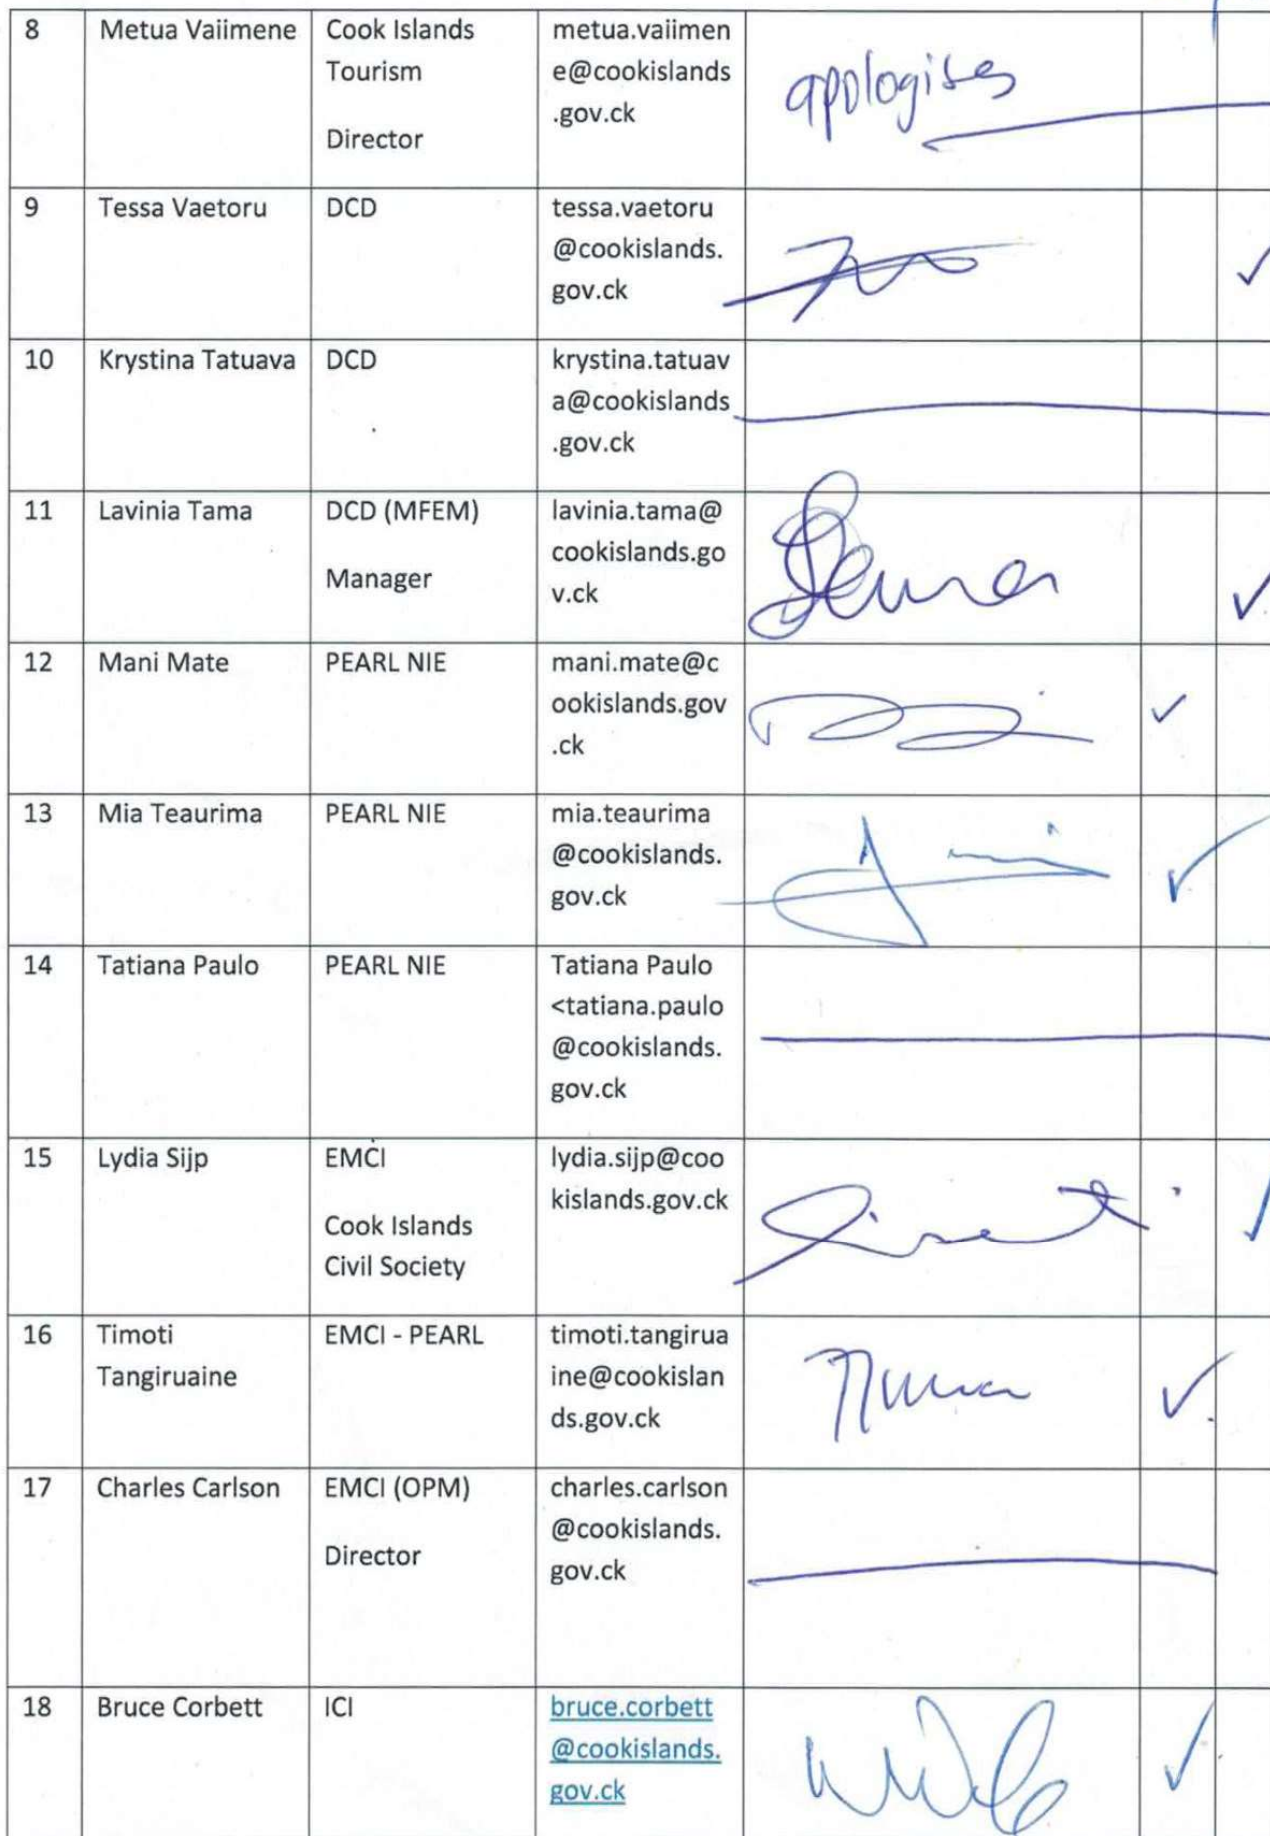 8 Metua Vaiimene Cook Islands metua.vaiimen
Tourism e@cookislands
.gov.ck
Director
apologises
9 Tessa Vaetoru DCD tessa.vaetoru
@cookislands.
gov.ck
10 Krystina Tatuava DCD krystina.tatuav
a@cookislands
.gov.ck
11 Lavinia Tama DCD (MFEM) lavinia.tama@
cookislands.go
Manager v.ck
12 Mani Mate PEARL NIE mani.mate@c
ookislands.gov
.ck
13 Mia Teaurima PEARL NIE mia.teaurima
@cookislands.
gov.ck
14 Tatiana Paulo PEARL NIE Tatiana Paulo
<tatiana.paulo
@cookislands.
gov.ck
15 Lydia Sijp EMCI lydia.sijp@coo
kislands.gov.ck
Cook Islands
Civil Society
16 Timoti EMCI - PEARL timoti.tangirua
Tangiruaine ine@cookislan
ds.gov.ck
17 Charles Carlson EMCI (OPM) charles.carlson
@cookislands.
Director gov.ck
18 Bruce Corbett ICI bruce.corbett
@cookislands.
gov.ck